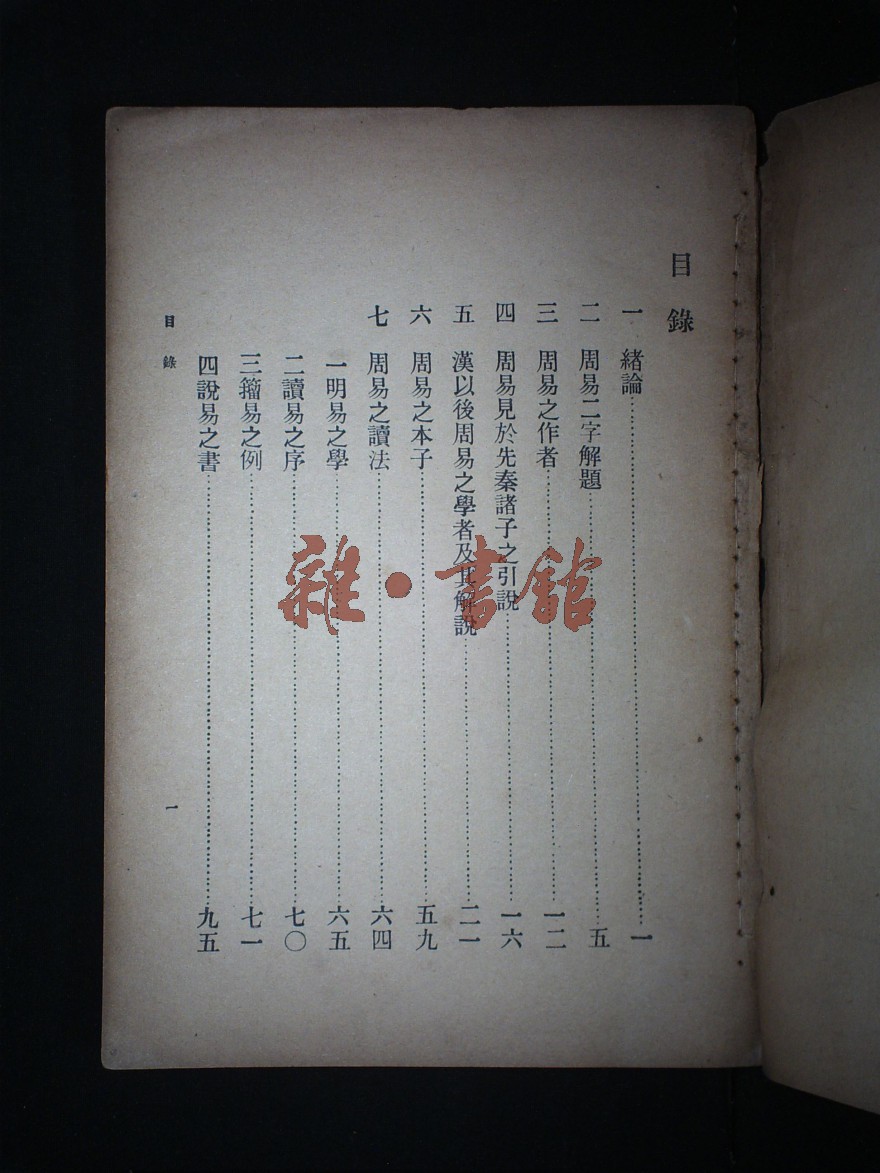 目錄
一 緒論……一
二 周易二字解題……五
三 周易之作者……一二
四 周易見於先秦諸子之引說……一六
五 漢以後周易之學者及其解說……二一
六 周易之本子……五九
七 周易之讀法……六四
一明易之學……六五
二讀易之序……七〇
三籀易之例……七一
四說易之書……九五
目錄 一
雜·書館